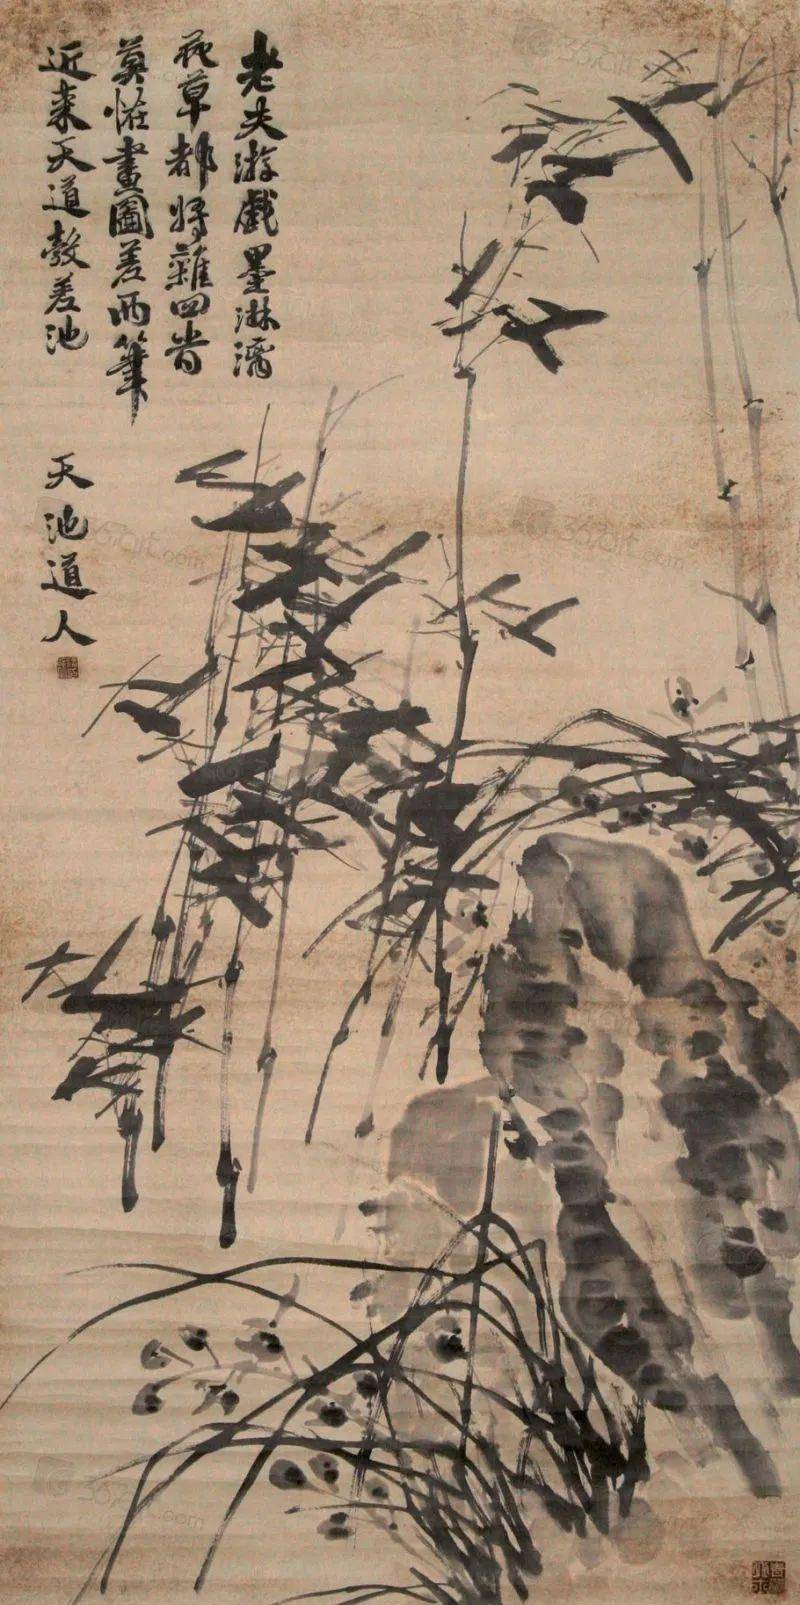 老夫游戲墨淋漓
花草都將雜四旹
莫恠畫圖差兩筆
近來天道彀差池
天池道人